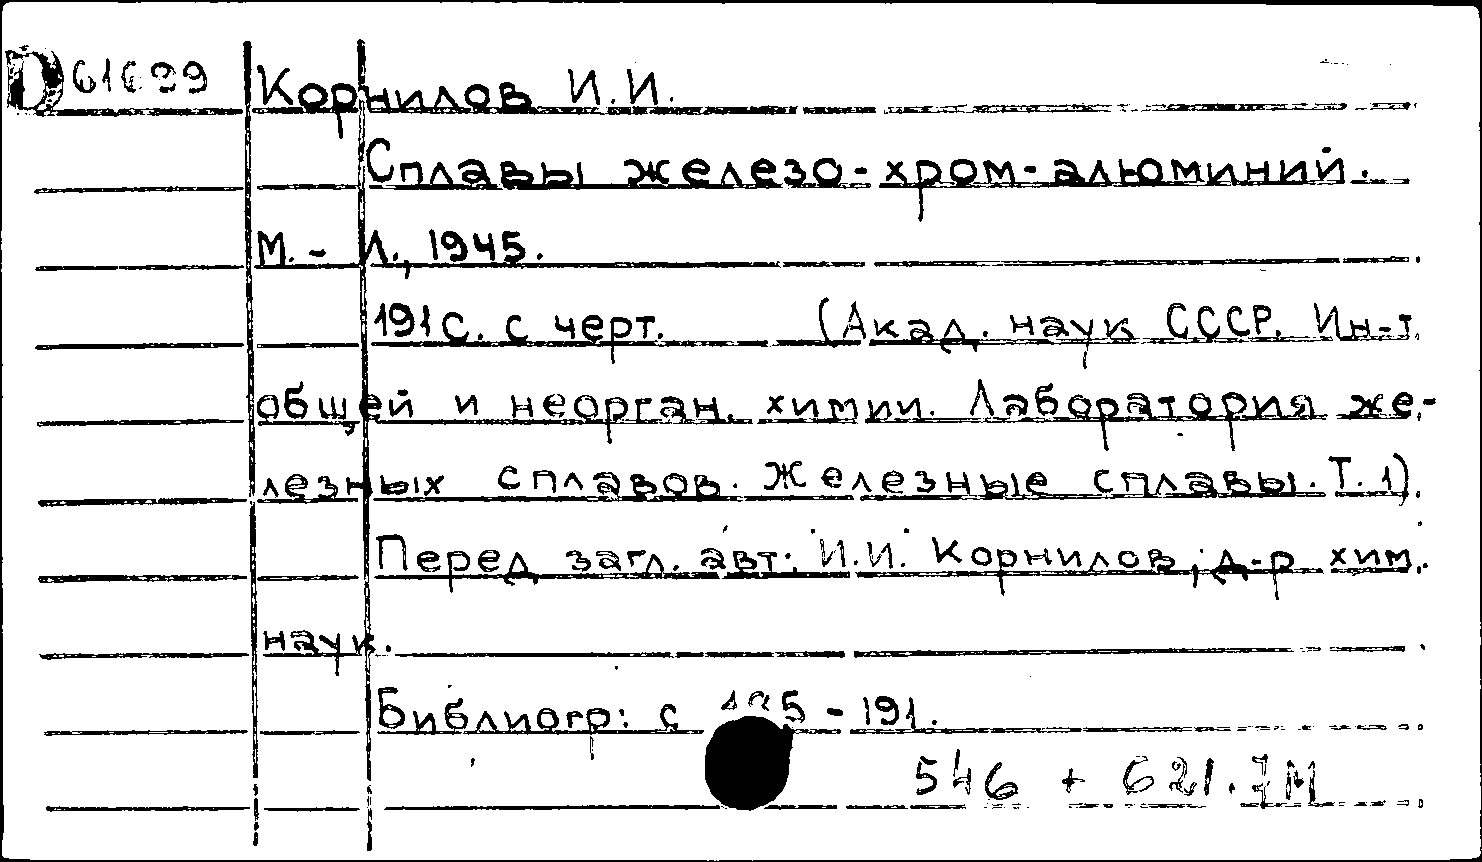 D 61699 Корнилов И.И.
Сплавы железо-хром-алюминий.
М. - Л., 1945.
191 с. с черт. (Акад. наук СССР. Ин-т.
общей и неорган. химии. Лаборатория же-
лезных сплавов. Железные сплавы. Т. 1).
Перед загл. авт: И.И. Корнилов, д-р хим.
наук.
Библиогр: с 185 - 191.
546 + 621.7М